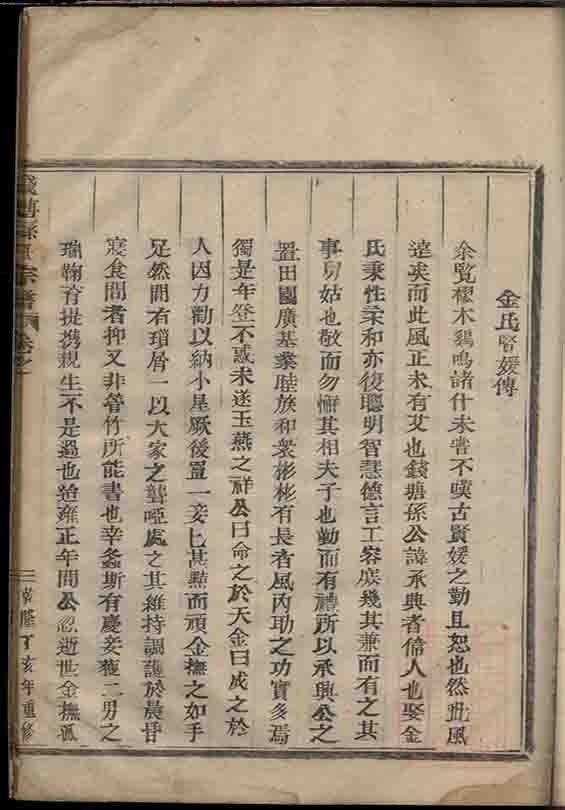 金氏賢媛傳
余覧樛木鷄鳴諸什未嘗不嘆古賢媛之勤且恕也然此風
遠矣而此風正未有艾也錢塘孫公諱承興者偹人也娶金
氏秉性柔和亦復聰明智慧德言工容庶幾其兼而有之其
事舅姑也敬而勿懈其相夫子也勤而有禮所以承興公之
置田園廣基業睦族和衆彬彬有長者風內助之功實多焉
獨是年登不惑未遂玉燕之祥公曰命之於天金曰成之於
人因力勸以納小星厥後置一妾匕甚黠而頑金撫之如手
足然間有瑣屑一以大家之聾啞處之其維持調護於晨昏
寢食間者抑又非管竹所能書也幸螽斯有慶妾獲二男之
瑞鞠育提携親生不是過也迨雍正年間公忽逝世金撫孤
宗譜 卷之
乾隆丁亥年重修